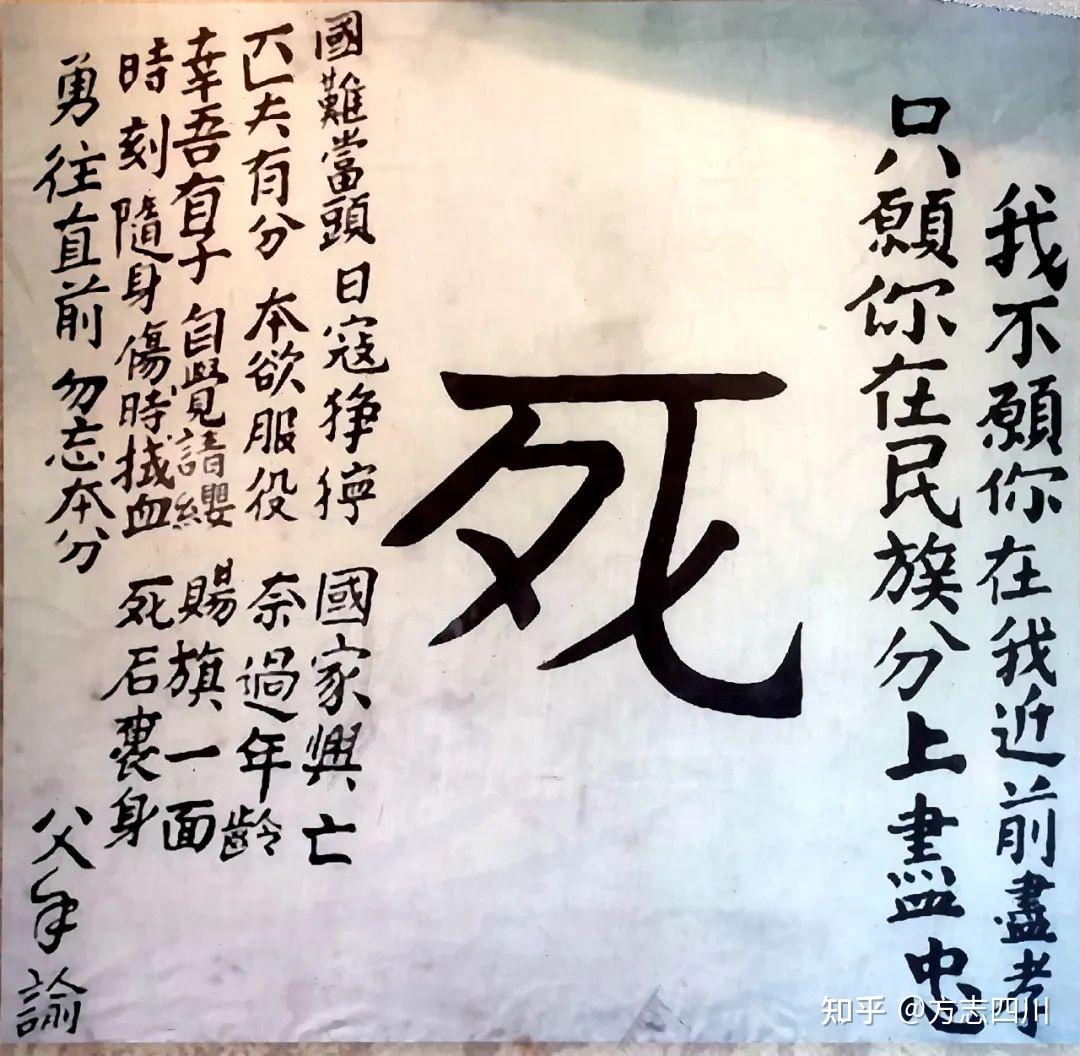 我不願你在我近前盡孝
只願你在民族分上盡忠
死
國難當頭 日寇猙獰 國家興亡
匹夫有分 本欲服役 奈過年齡
幸吾有子 自覺請纓 賜旗一面
時刻隨身 傷時拭血 死后裹身
勇往直前 勿忘本分
父手諭
知乎 @方志四川